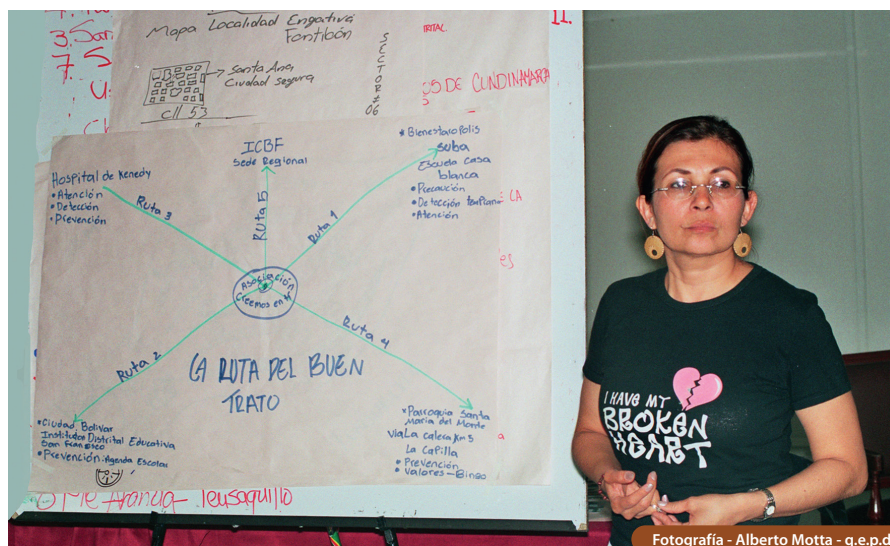 3.San
7. S
11.
Mapa Localidad Engativa
Fontibón
→ Santa Ana,
Ciudad segura
cll 53
SECTOR #06
RITAL
OS DE CUNDINAMARCA
S
Hospital de Kenedy
• Atención
• Detección
• Prevención
ICBF
Sede Regional
* Bienestaropolis
suba
Escuela casa
blanca
• Precaución
• Detección temprana
• Atención
E CA
es
Ruta 3
Ruta 5
Ruta 1
Asociación
Creemos en ti
Ruta 2
Ruta 4
LA RUTA DEL BUEN
TRATO
• Ciudad Bolivar
Institucion Distrital Educativa
San Francisco
• Prevención: Agenda Escolar
* Parroquia Santa
Maria del Monte
Via La calera Km 5
La Capilla
• Prevención
• Valores - Bingo
Teusaquillo
I HAVE MY
BROKEN
HEART
Fotografía - Alberto Motta - q.e.p.d